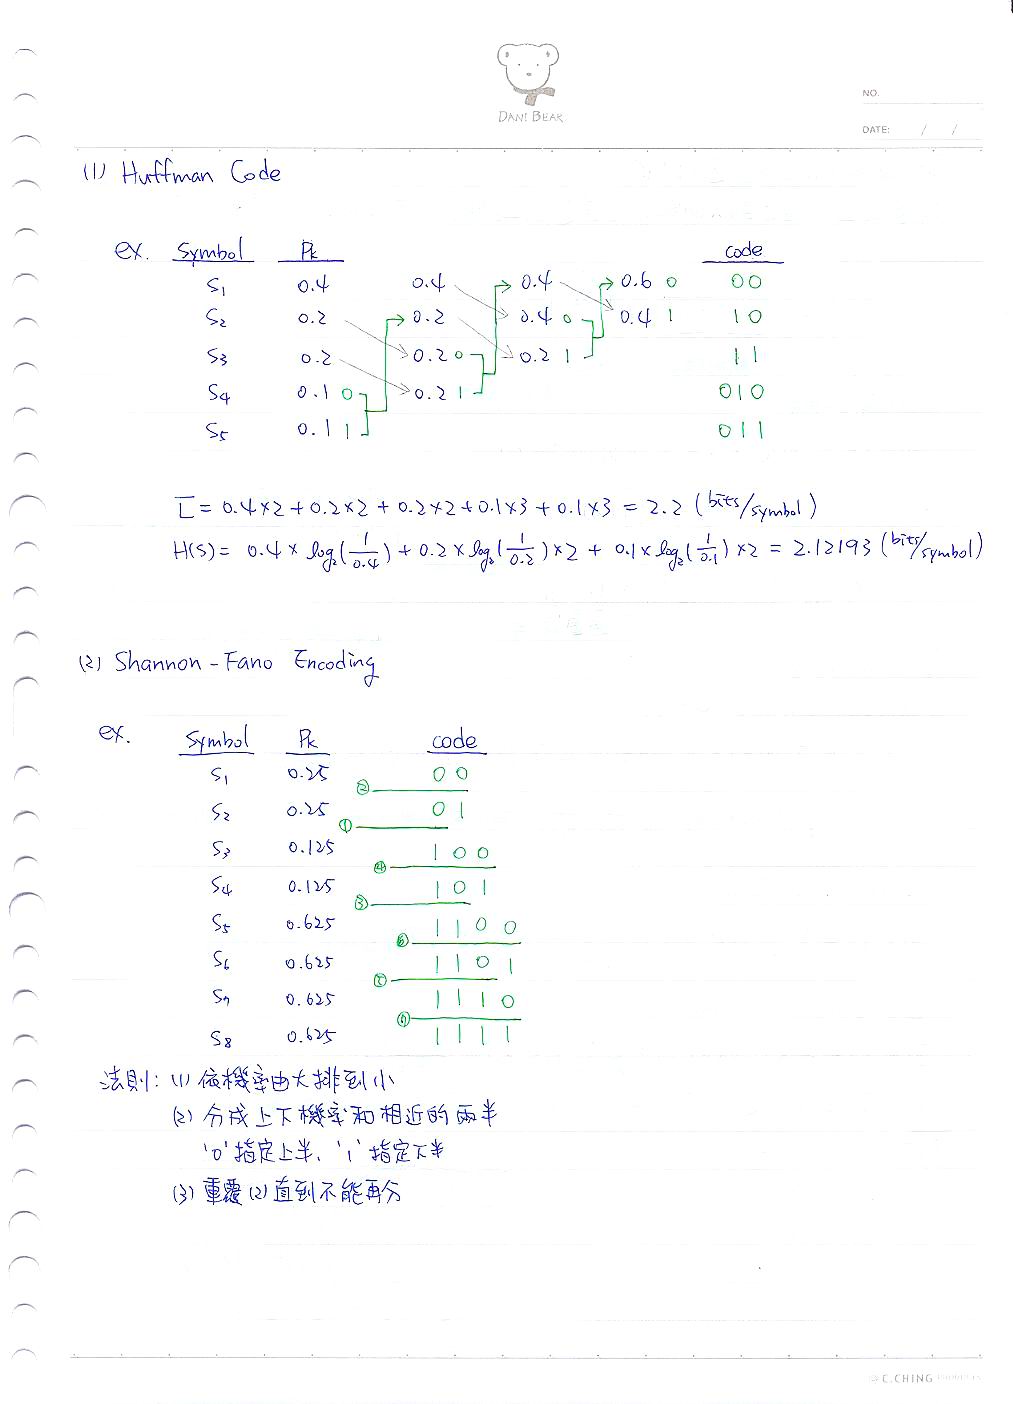 DANI BEAR
NO.
DATE: / /
(1) Huffman Code
ex. Symbol Pk code
S1 0.4 0.4 0.4 0.6 0 00
S2 0.2 0.2 0.4 0 0.4 1 10
S3 0.2 0.2 0 0.2 1 11
S4 0.1 0 0.2 1 010
S5 0.1 1 011
L̄ = 0.4×2 + 0.2×2 + 0.2×2 + 0.1×3 + 0.1×3 = 2.2 (bits/symbol)
H(S) = 0.4 × log2(1/0.4) + 0.2 × log2(1/0.2) × 2 + 0.1 × log2(1/0.1) × 2 = 2.12193 (bits/symbol)
(2) Shannon-Fano Encoding
ex. Symbol Pk code
S1 0.25 00
②
S2 0.25 01
①
S3 0.125 100
④
S4 0.125 101
③
S5 0.625 1100
⑥
S6 0.625 1101
⑤
S7 0.625 1110
S8 0.625 1111
法則: (1) 依機率由大排到小
(2) 分成上下機率和相近的兩半
'0'指定上半、'1'指定下半
(3) 重覆(2)直到不能再分
C.CHING PRODUCTS